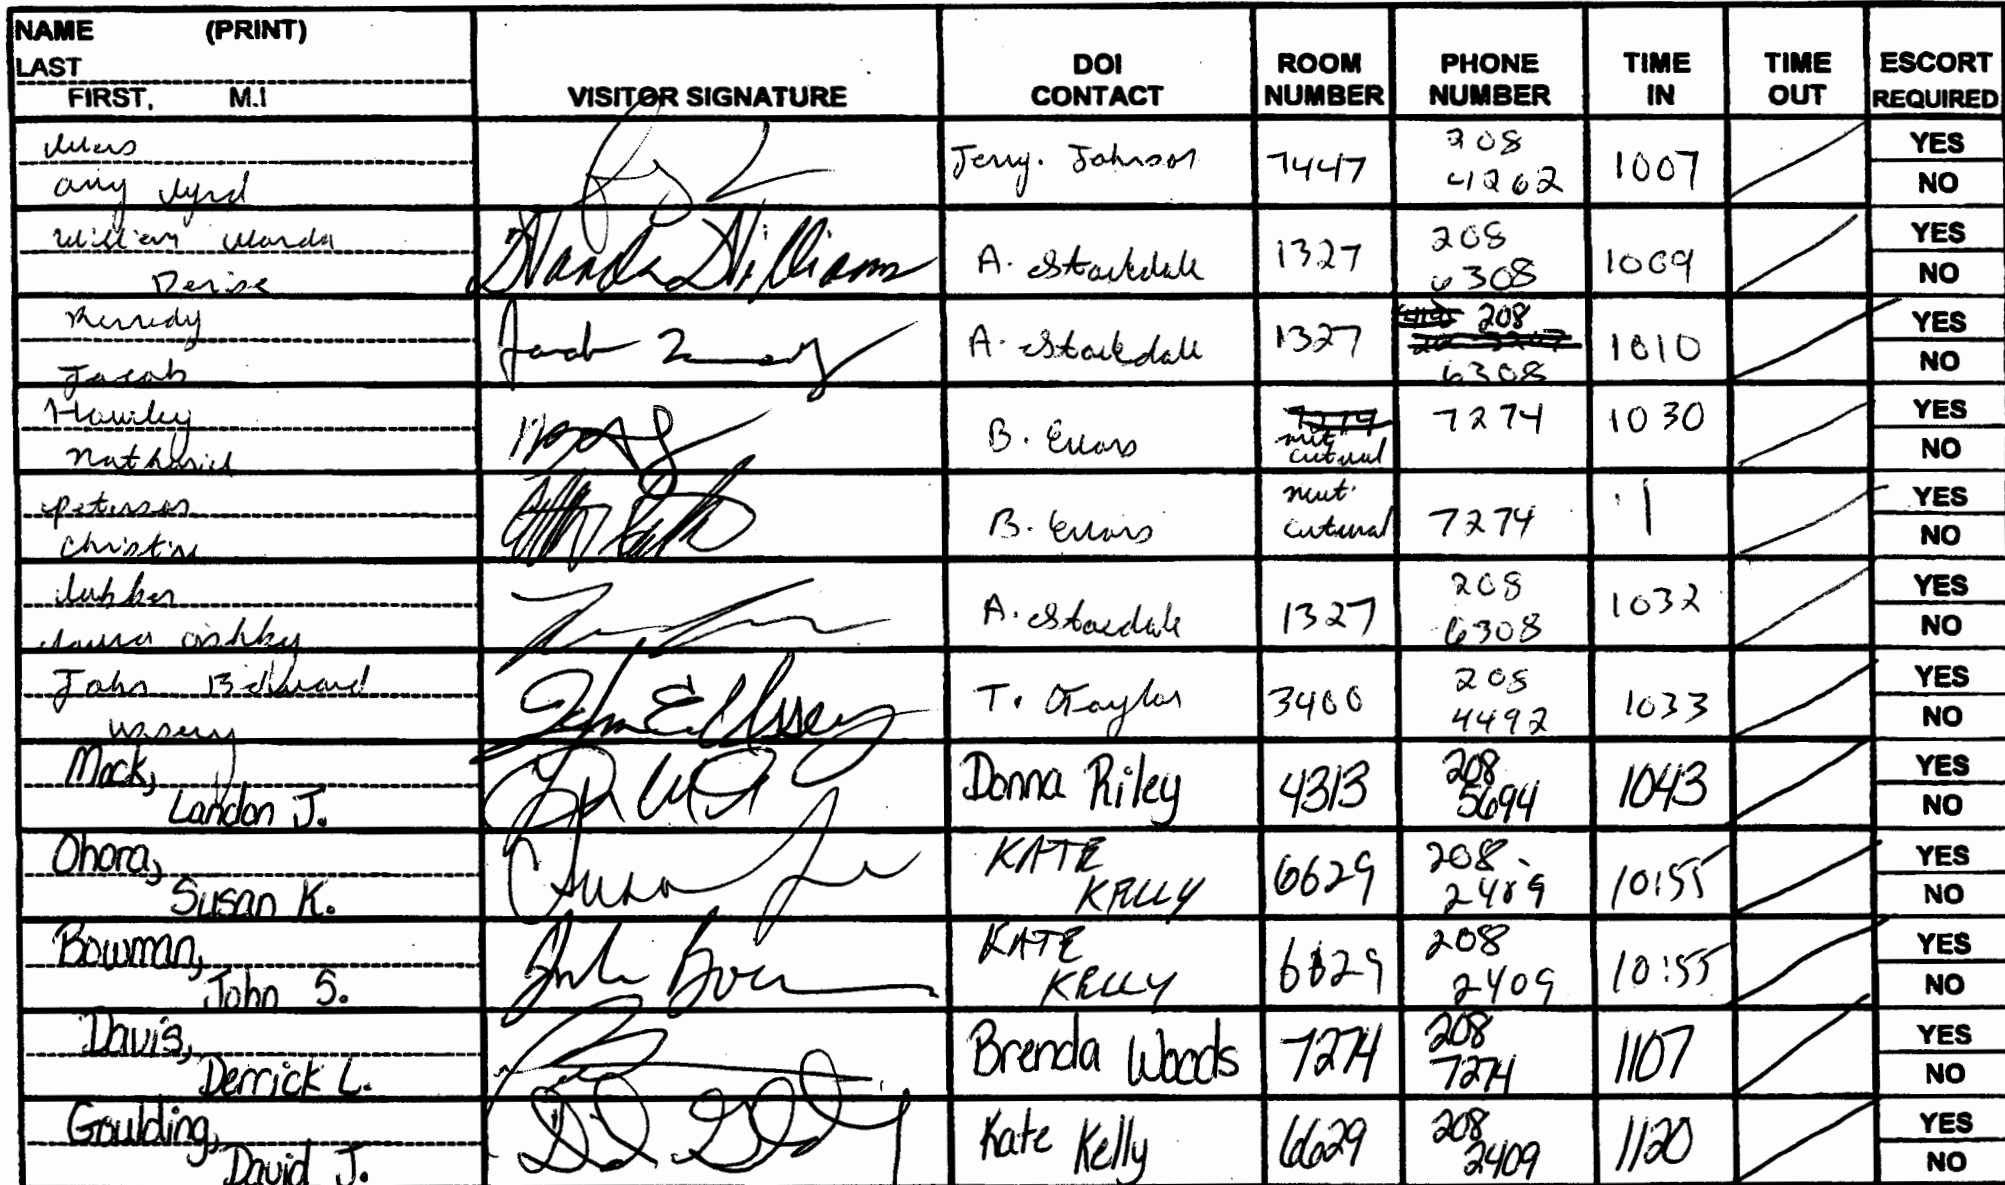 NAME (PRINT)
LAST
FIRST, M.I
VISITOR SIGNATURE
DOI CONTACT
ROOM NUMBER
PHONE NUMBER
TIME IN
TIME OUT
ESCORT REQUIRED
Jerry. Johnson 7447 208 4262 1007 YES NO
Denise Wanda Williams A. Stockdale 1327 208 6308 1009 YES NO
Kennedy
Jacob A. Stockdale 1327 208 6308 1010 YES NO
Hawley
Nathaniel B. Evans 7274 7274 1030 YES NO
Peterson
Christine B. Evans 7274 YES NO
Ashby A. Stockdale 1327 208 6308 1032 YES NO
John Edward
Ussery John E Ussery T. Taylor 3400 208 4492 1033 YES NO
Mack,
Landon J. Donna Riley 4313 208 5694 1043 YES NO
Ohara,
Susan K. Susan KATE KELLY 6629 208 2409 10:55 YES NO
Bowman,
John S. KATE KELLY 6629 208 2409 10:55 YES NO
Davis,
Derrick L. Brenda Woods 7274 208 7274 1107 YES NO
Goulding,
David J. Kate Kelly 6629 208 2409 1120 YES NO